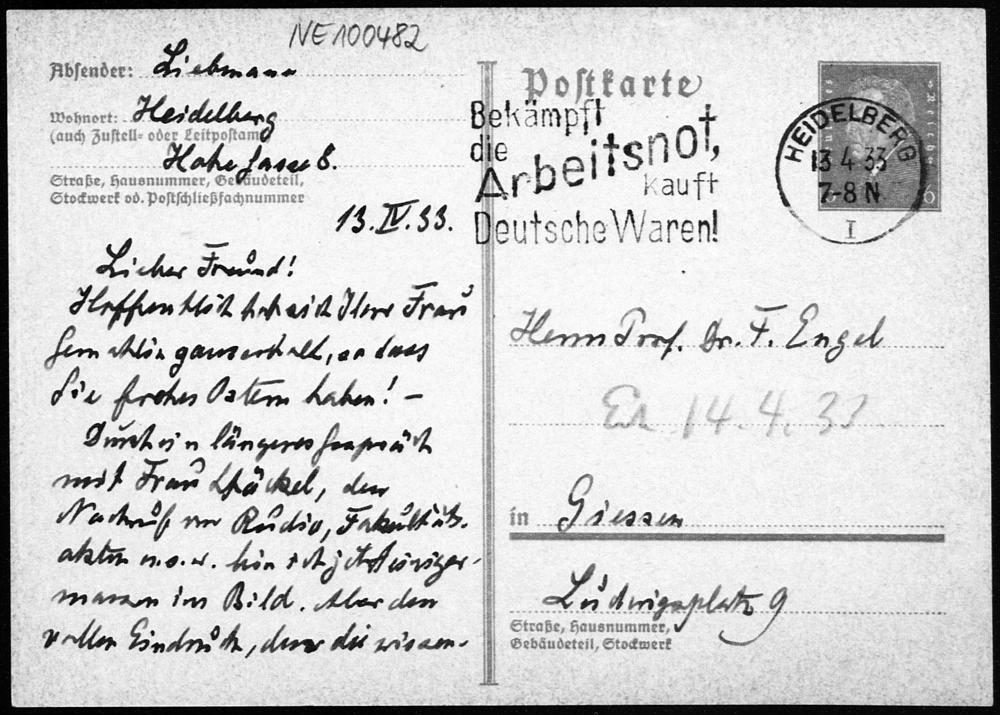 NE100482
Absender: Liebmann
Wohnort: Heidelberg
(auch Zustell- oder Leitpostamt)
Straße, Hausnummer, Gebäudeteil,
Stockwerk od. Postschließfachnummer
13. IV. 33.
Lieber Freund!
Hoffentlich hat sich Ihre Frau
Gemahlin ganz erholt, so dass
Sie frohes Ostern haben! –
Durch ein längeres Gespräch
mit Frau Stäckel, den
Nachruf von Rudio, Fakultäts-
akten u.s.w. bin ich jetzt einiger-
massen im Bild. Aber den
vollen Eindruck, den die wissen-
Postkarte
Bekämpft
die
Arbeitsnot,
kauft
Deutsche Waren!
HEIDELBERG
13 4 33
7-8 N
I
Herrn Prof. Dr. F. Engel
14.4.33
in Giessen
Ludwigsplatz 9
Straße, Hausnummer,
Gebäudeteil, Stockwerk